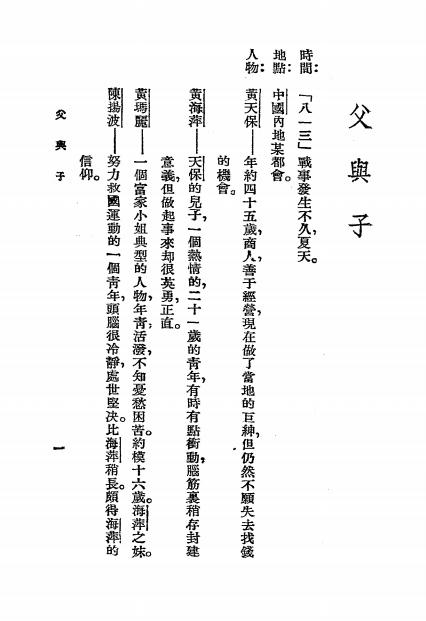 父與子
時間：「八一三」戰事發生不久，夏天。
地點：中國內地某都會。
人物：
黃天保——年約四十五歲，商人，善于經營，現在做了當地的巨紳，但仍然不願失去找錢
的機會。
黃海萍——天保的兒子，一個熱情的，二十一歲的靑年，有時有點衝動，腦筋裏稍存封建
意義，但做起事來却很英勇，正直。
黃瑪麗——一個富家小姐典型的人物，年靑；活潑，不知憂愁困苦。約模十六歲。海萍之妹。
陳揚波——努力救國運動的一個靑年，頭腦很冷靜，處世堅决。比海萍稍長。頗得海萍的
信仰。
父與子
一